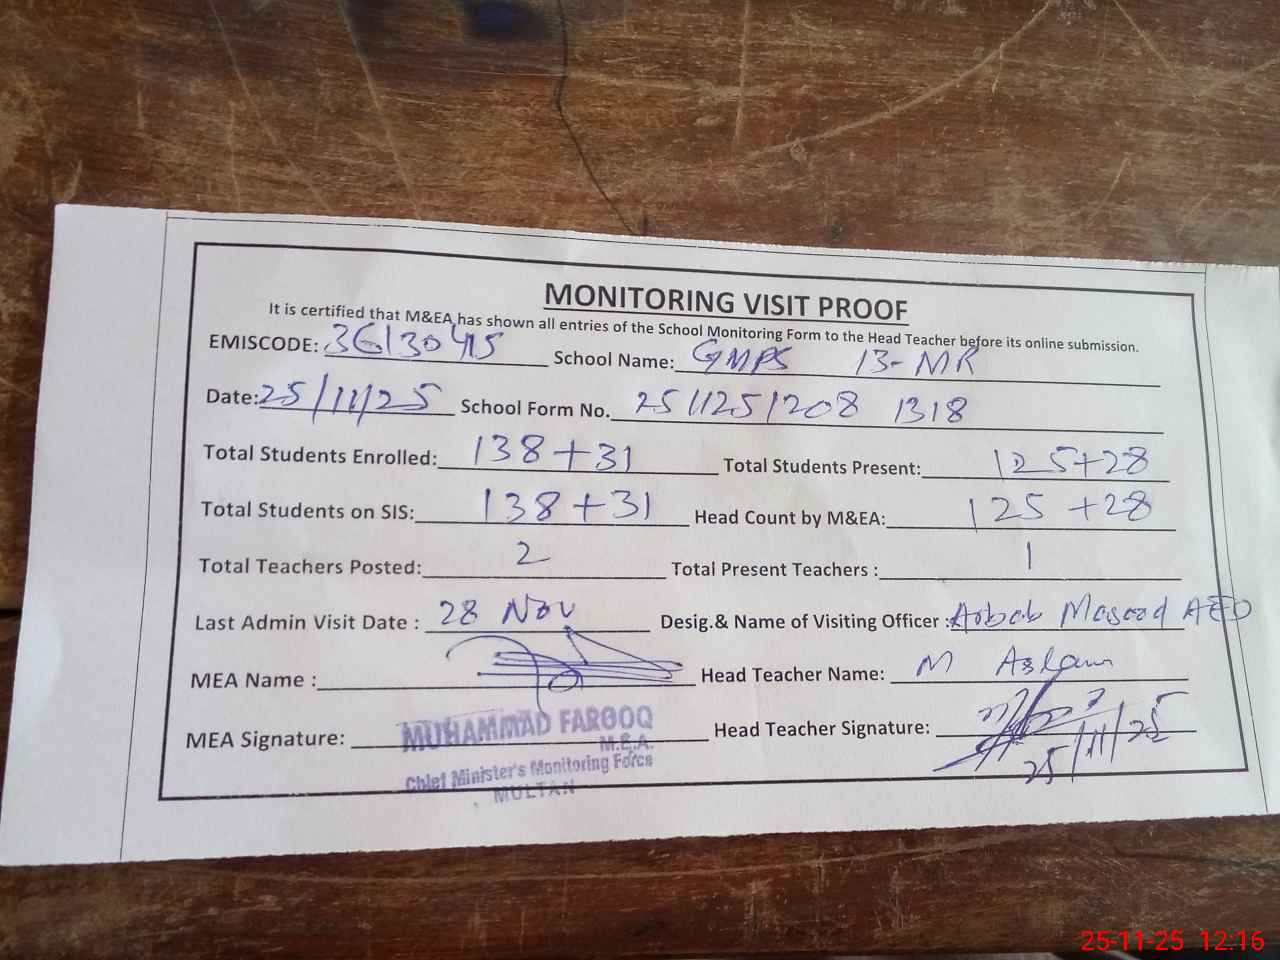 MONITORING VISIT PROOF
It is certified that M&EA has shown all entries of the School Monitoring Form to the Head Teacher before its online submission.
EMISCODE: 36130415 School Name: GMPS 13-MR
Date: 25/11/25 School Form No. 2511251208 1318
Total Students Enrolled: 138+31 Total Students Present: 125+28
Total Students on SIS: 138+31 Head Count by M&EA: 125 +28
Total Teachers Posted: 2 Total Present Teachers : 1
Last Admin Visit Date : 28 Nov Desig.& Name of Visiting Officer : Arbab Masood AEO
MEA Name : Head Teacher Name: M Aslam
MEA Signature: MUHAMMAD FAROOQ Head Teacher Signature:
M.E.A.
Chief Minister's Monitoring Force
MULTAN
25/11/25
25-11-25 12:16